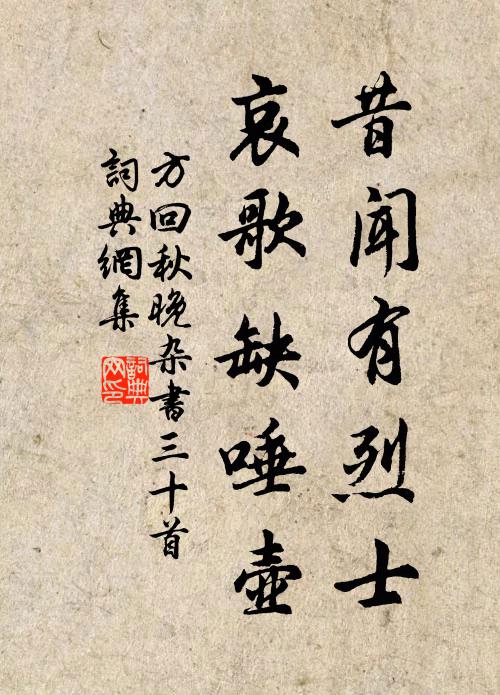 昔闻有烈士
哀歌缺唾壶
方回秋晚杂书三十首
詞典網集
詞典
网印